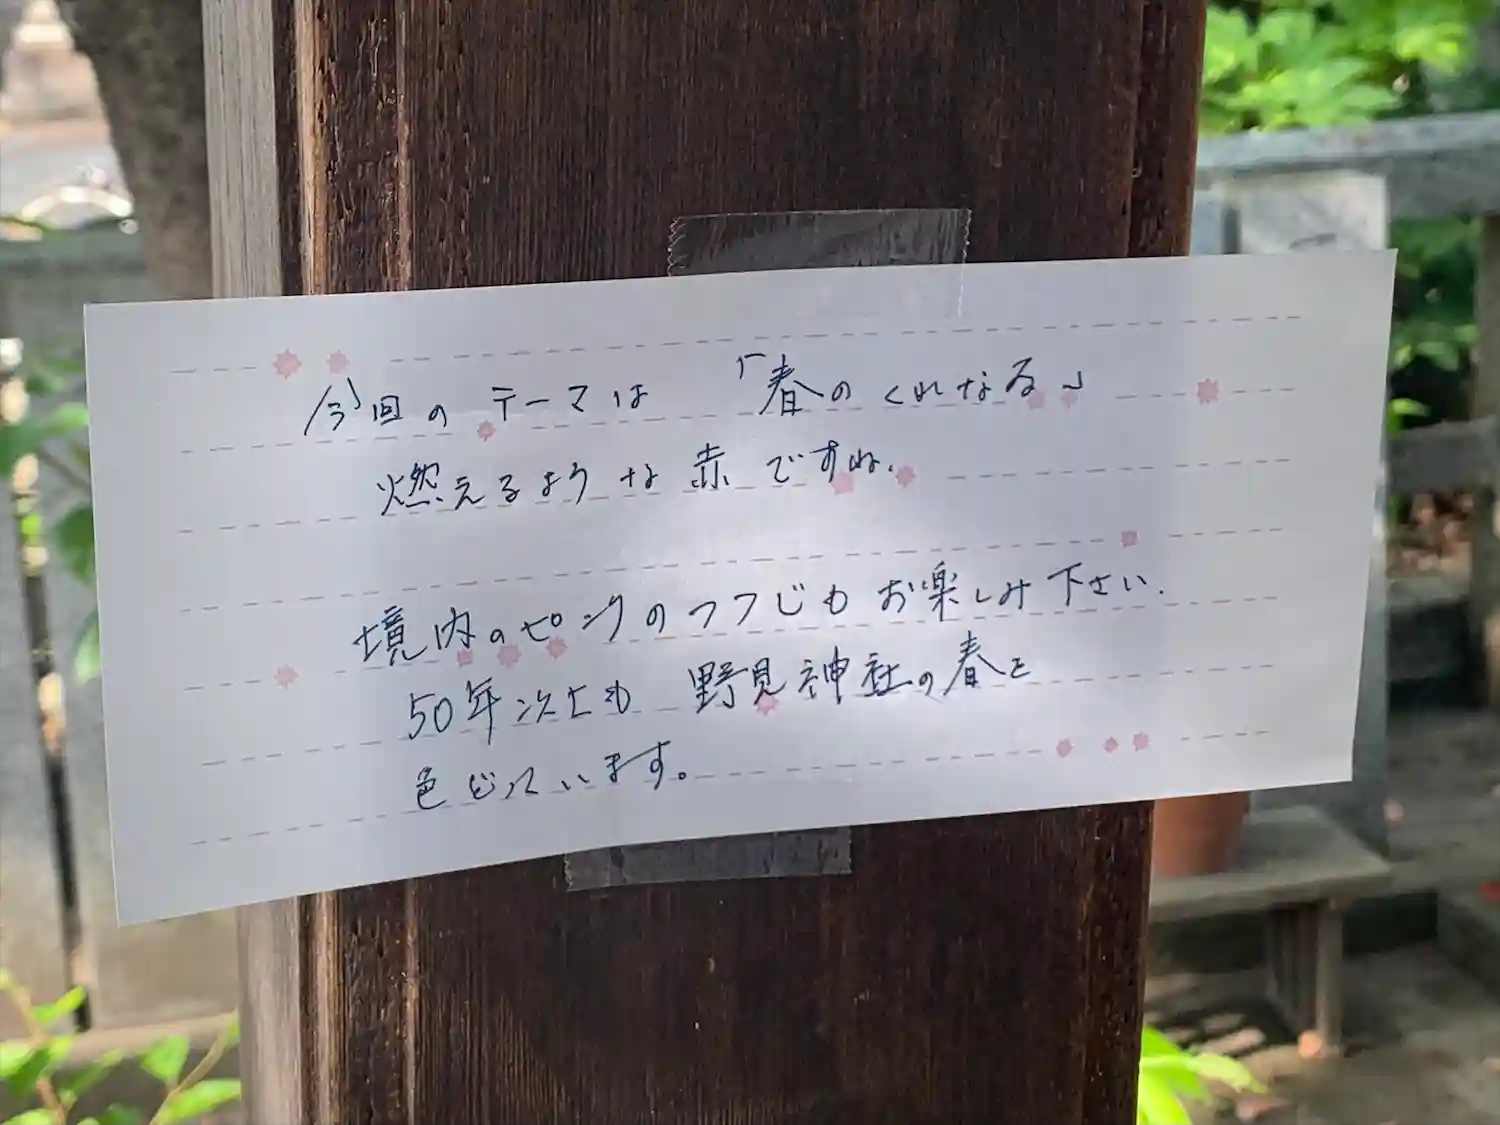 今回のテーマは「春のくれなゐ」
燃えるような赤ですね.
境内のピンクのツツじもお楽しみ下さい.
50年次とも 野見神社の春を
色どっています。